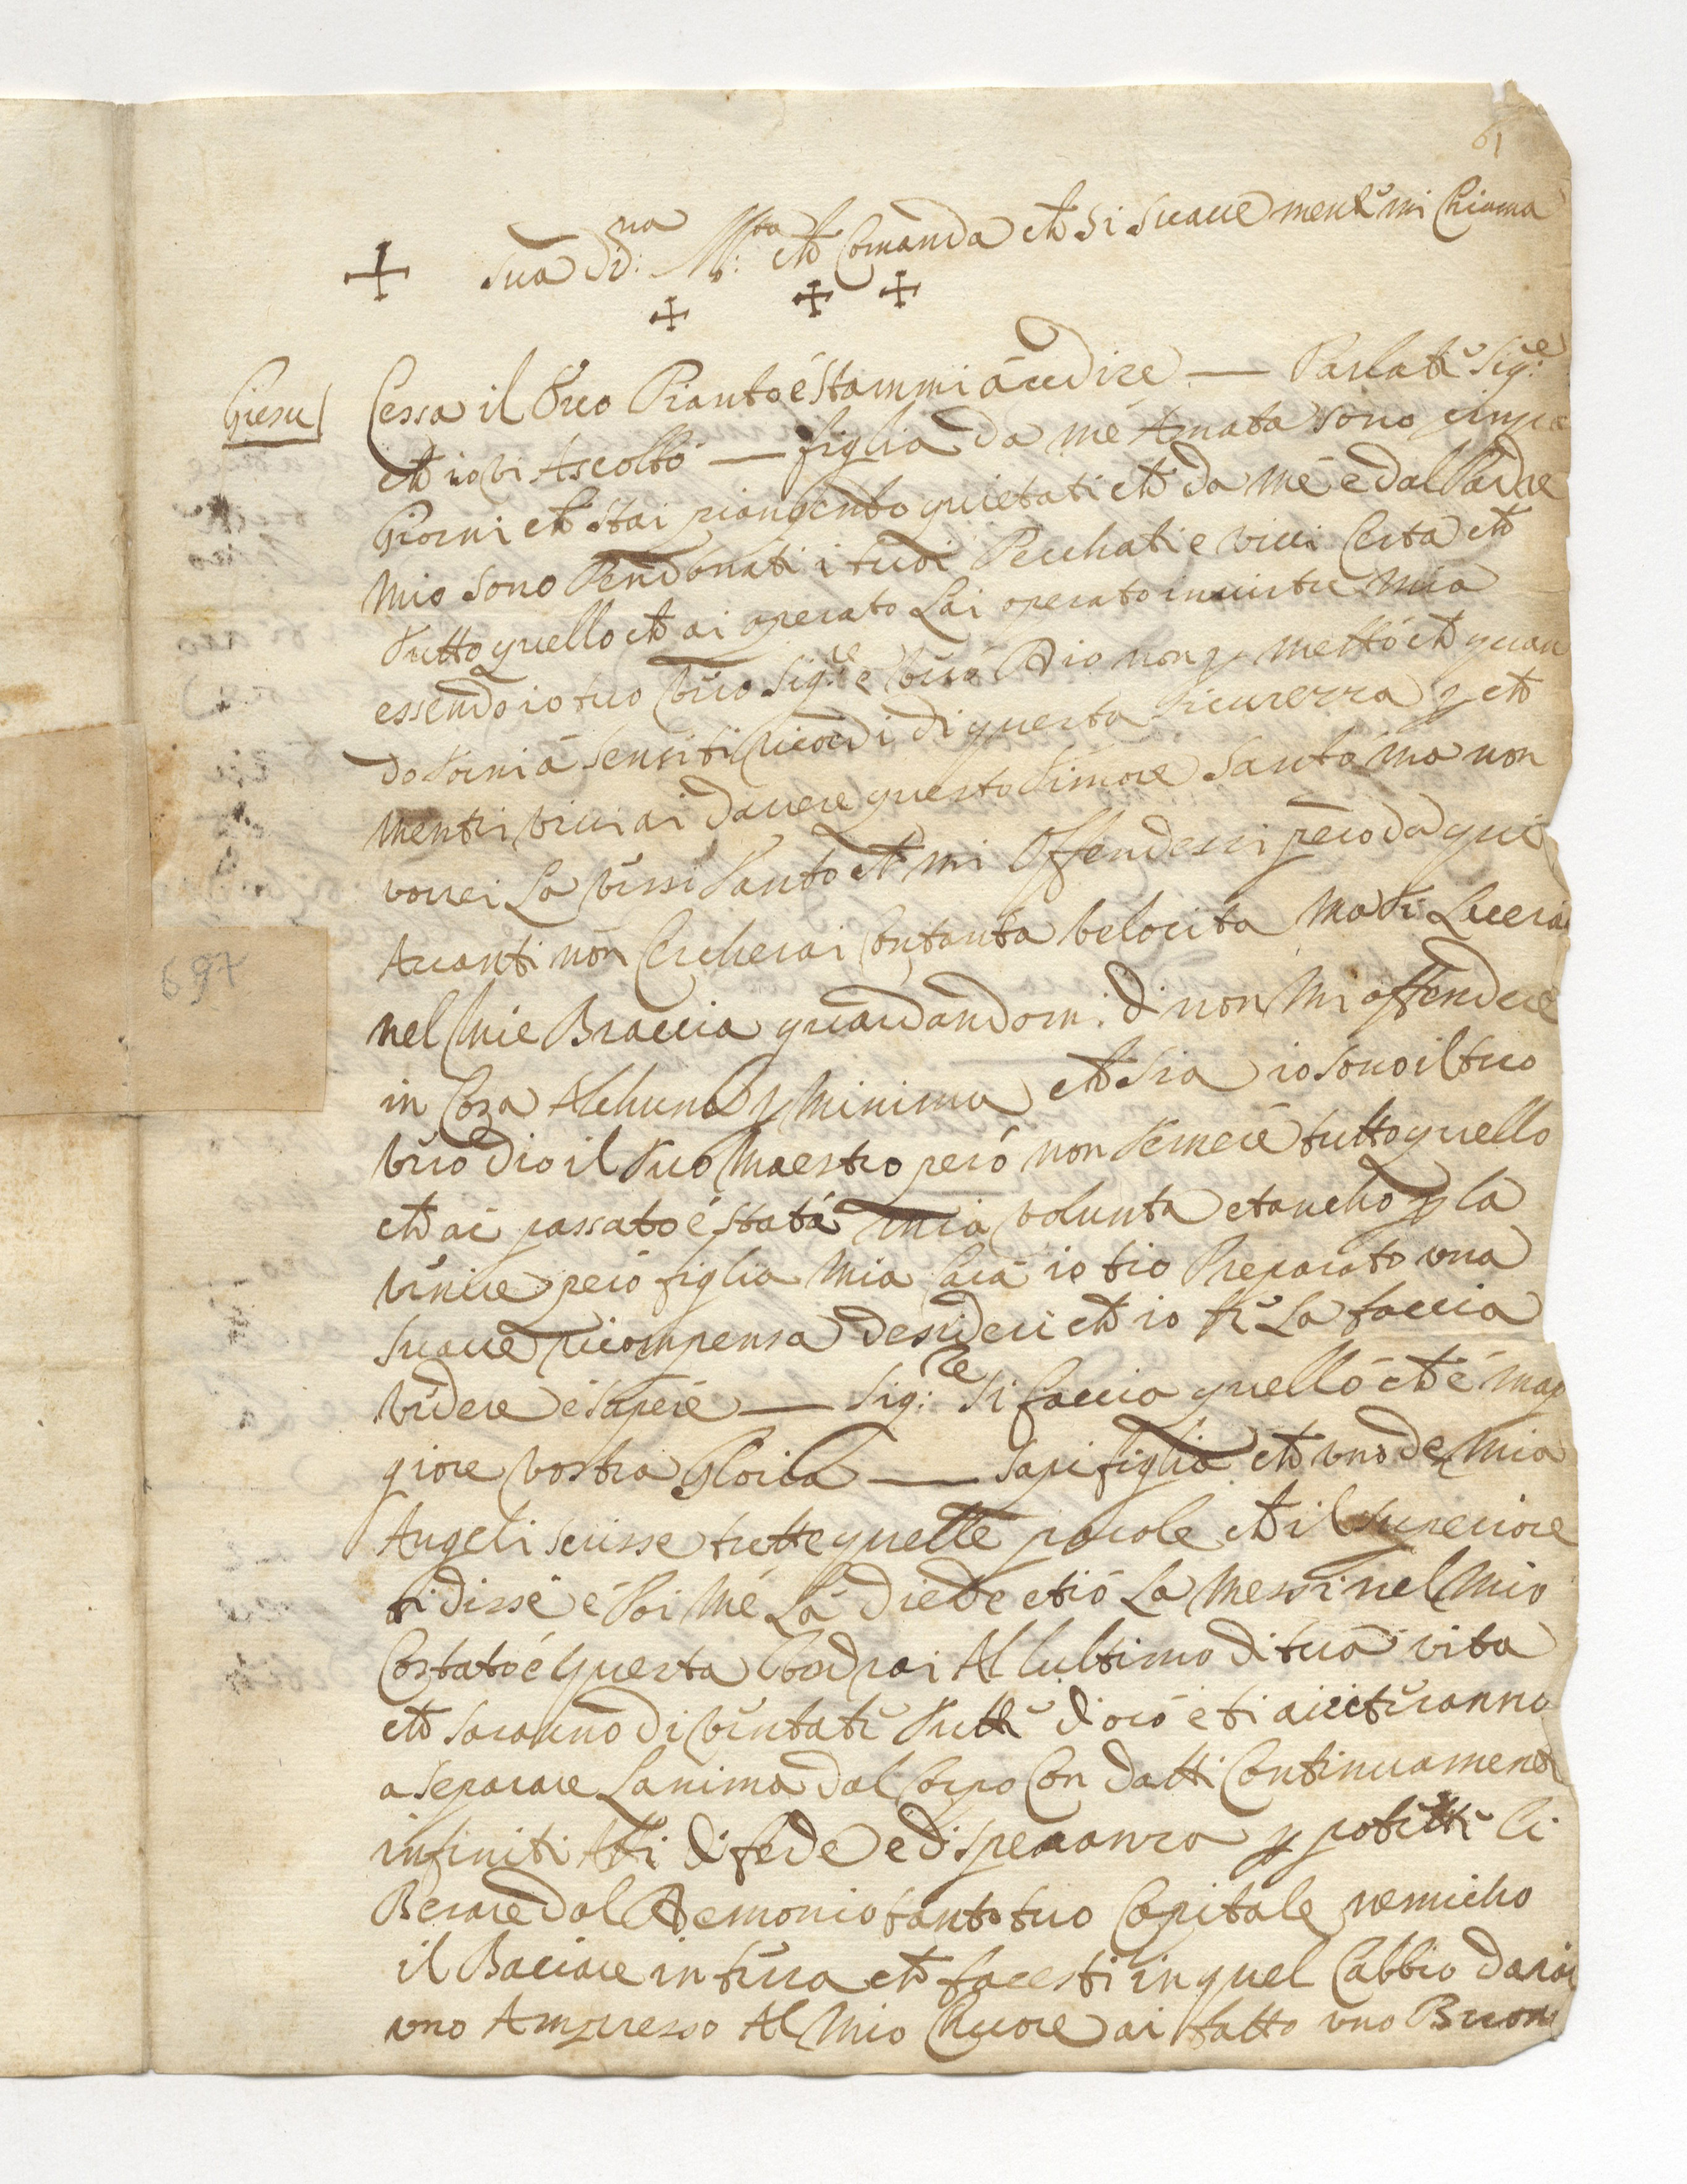 61
Sua D:na M:ta che Comanda che si suaue mente mi Chiama
Giesu
Cessa il tuo Pianto é stammi á udire — Parlate Sig:e
che io vi Ascolto — figlia da mé Amata sono cinque
Giorni che stai piangendo quietati che da mé e dal Padre
mio sono Perdonati i tuoi Pecchati e viui Certa che
tutto quello che ai operato Lai operato in uirtu mia
essendo io tuo vero Sig:re e vero Dio non p metto che quan
do torni á sensi ti ricordi di questa sicurezza p che
mentri viui ai dauere questo timore Santo ma non
vorrei Lo vessi tanto che mi Offendessi pero da qui
Auanti non Cercherai Con tanta velocita ma ti Lecerai
nel mie Braccia guardandomi di non mi offendere
in Coza Alchuna p minima che sia io sono il tuo
vero Dio il tuo Maestro peró non temere tutto quello
che ai passato é stata mia volunta et ancho p la
venire peró figlia mia Cara io tio Preparato una
suaue ricompensa desideri che io te La faccia
vedere é sapere — Sig:re Si faccia quelló che é mag
giore vostra Gloria — Sapi figlia che uno de mia
Angeli scrisse tutte quelle parole che il superiore
ti disse é Poi me La diede et ió La messi nel mio
Costató é questa Vedrai Al lultimo di tua vita
che saranno di ventate tutte di oró é ti aiuteranno
a Separare Lanima dal Corpo Con darti Continuamente
infiniti Atti di fede e di speranza p poterti li
Berare dal Demonio tanto tuo Capitale nemicho
il Baciare in terra che facesti in quel Cabbio darai
uno Ampresso Al mio Chuore ai fatto uno Buon
697